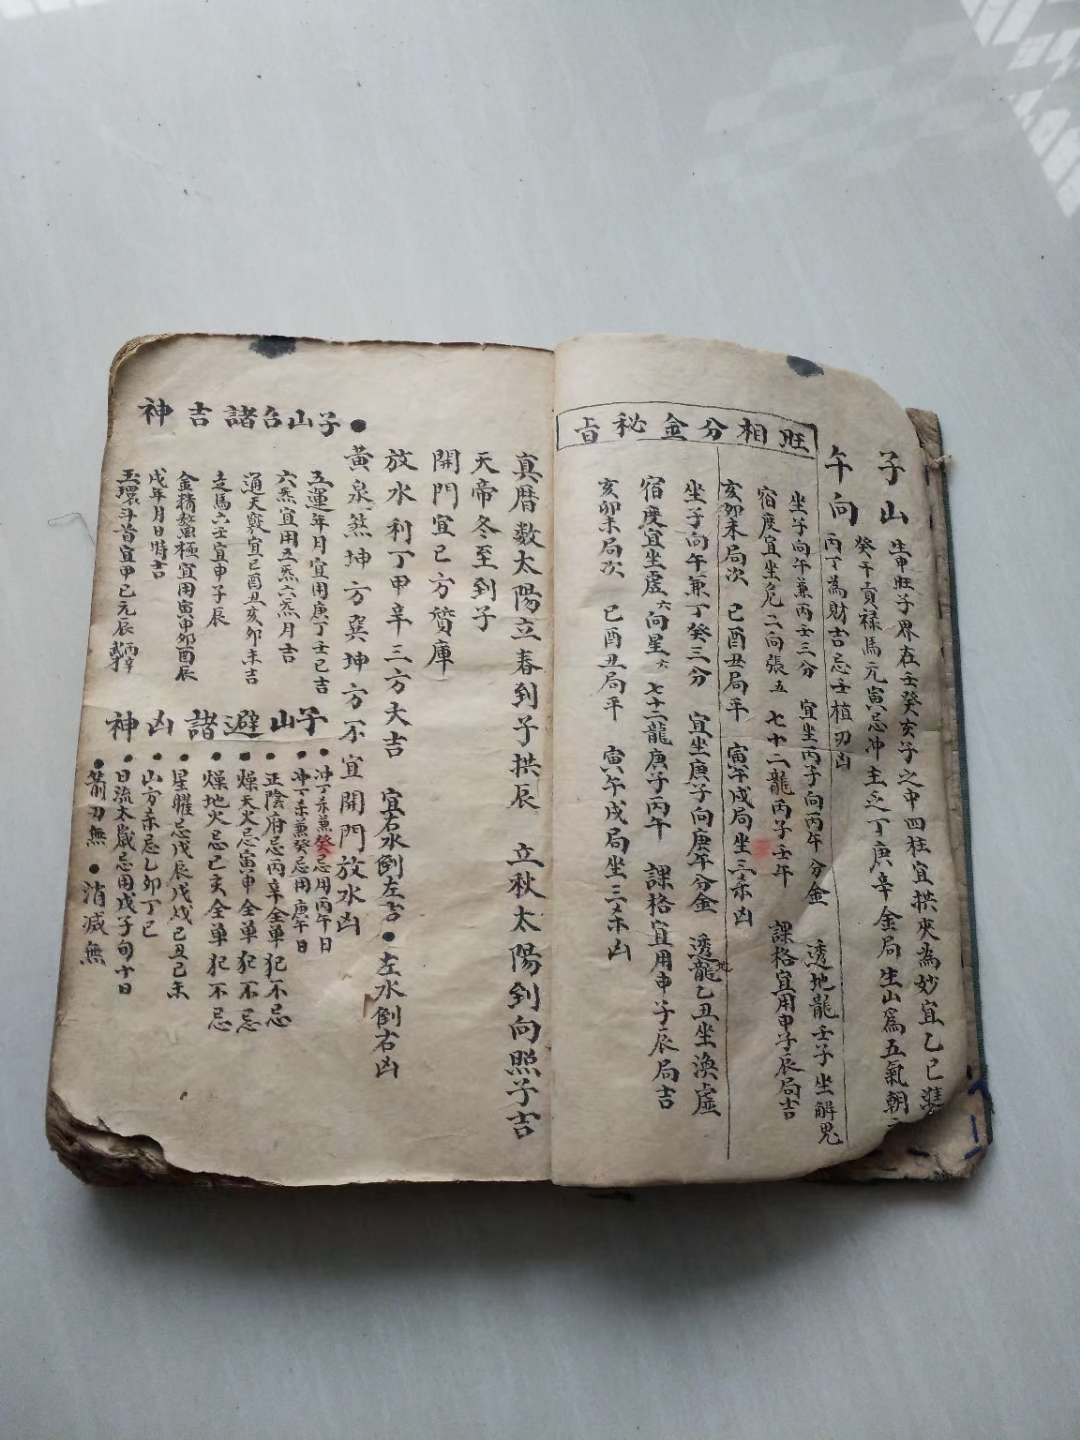 子山午向
生申旺子界在壬癸亥子之中四柱宜拱夾為妙宜乙巳
癸干貢祿馬元寅忌冲主乏丁庚辛金局生山為五氣朝
丙丁為財吉忌壬植刃凶
旺相分金秘旨
坐子向午兼丙壬三分 宜坐丙子向丙午分金 透地龍壬子坐解鬼
宿度宜坐危二向張五 七十二龍丙子壬午 課格宜用申子辰局吉
亥卯未局次 巳酉丑局平 寅午戌局坐三杀凶
坐子向午兼丁癸三分 宜坐庚子向庚午分金 透地龍乙丑坐渙虛
宿度宜坐虛六向星六 七十二龍庚子丙午 課格宜用申子辰局吉
亥卯未局次 巳酉丑局平 寅午戌局坐三杀凶
真曆数太陽立春到子拱辰 立秋太陽到向照子吉
天帝冬至到子
開門宜巳方贊庫
放水利丁甲辛三方大吉 宜右水倒左吉●左水倒右凶
黃泉煞坤方巽坤方不宜開門放水凶
●子山諸吉神
五運年月宜用庚丁壬巳吉
六炁宜用五炁六炁月吉
通天竅宜巳酉丑亥卯未吉
走馬六壬宜申子辰
金精鰲極宜用寅申卯酉辰
戊年月日時吉
玉環斗首宜甲巳元辰
子山避諸凶神
●冲丁杀兼癸忌用丙午日
●冲丁杀兼癸忌用庚午日
●正陰府忌丙辛全单犯不忌
●燥天火忌寅申全单犯不忌
●燥地火忌巳亥全单犯不忌
●星曜忌戊辰戊戌己丑己未
●山方杀忌乙卯丁巳
●日流太歲忌用戊子旬十日
●箭刃無 ●消滅無